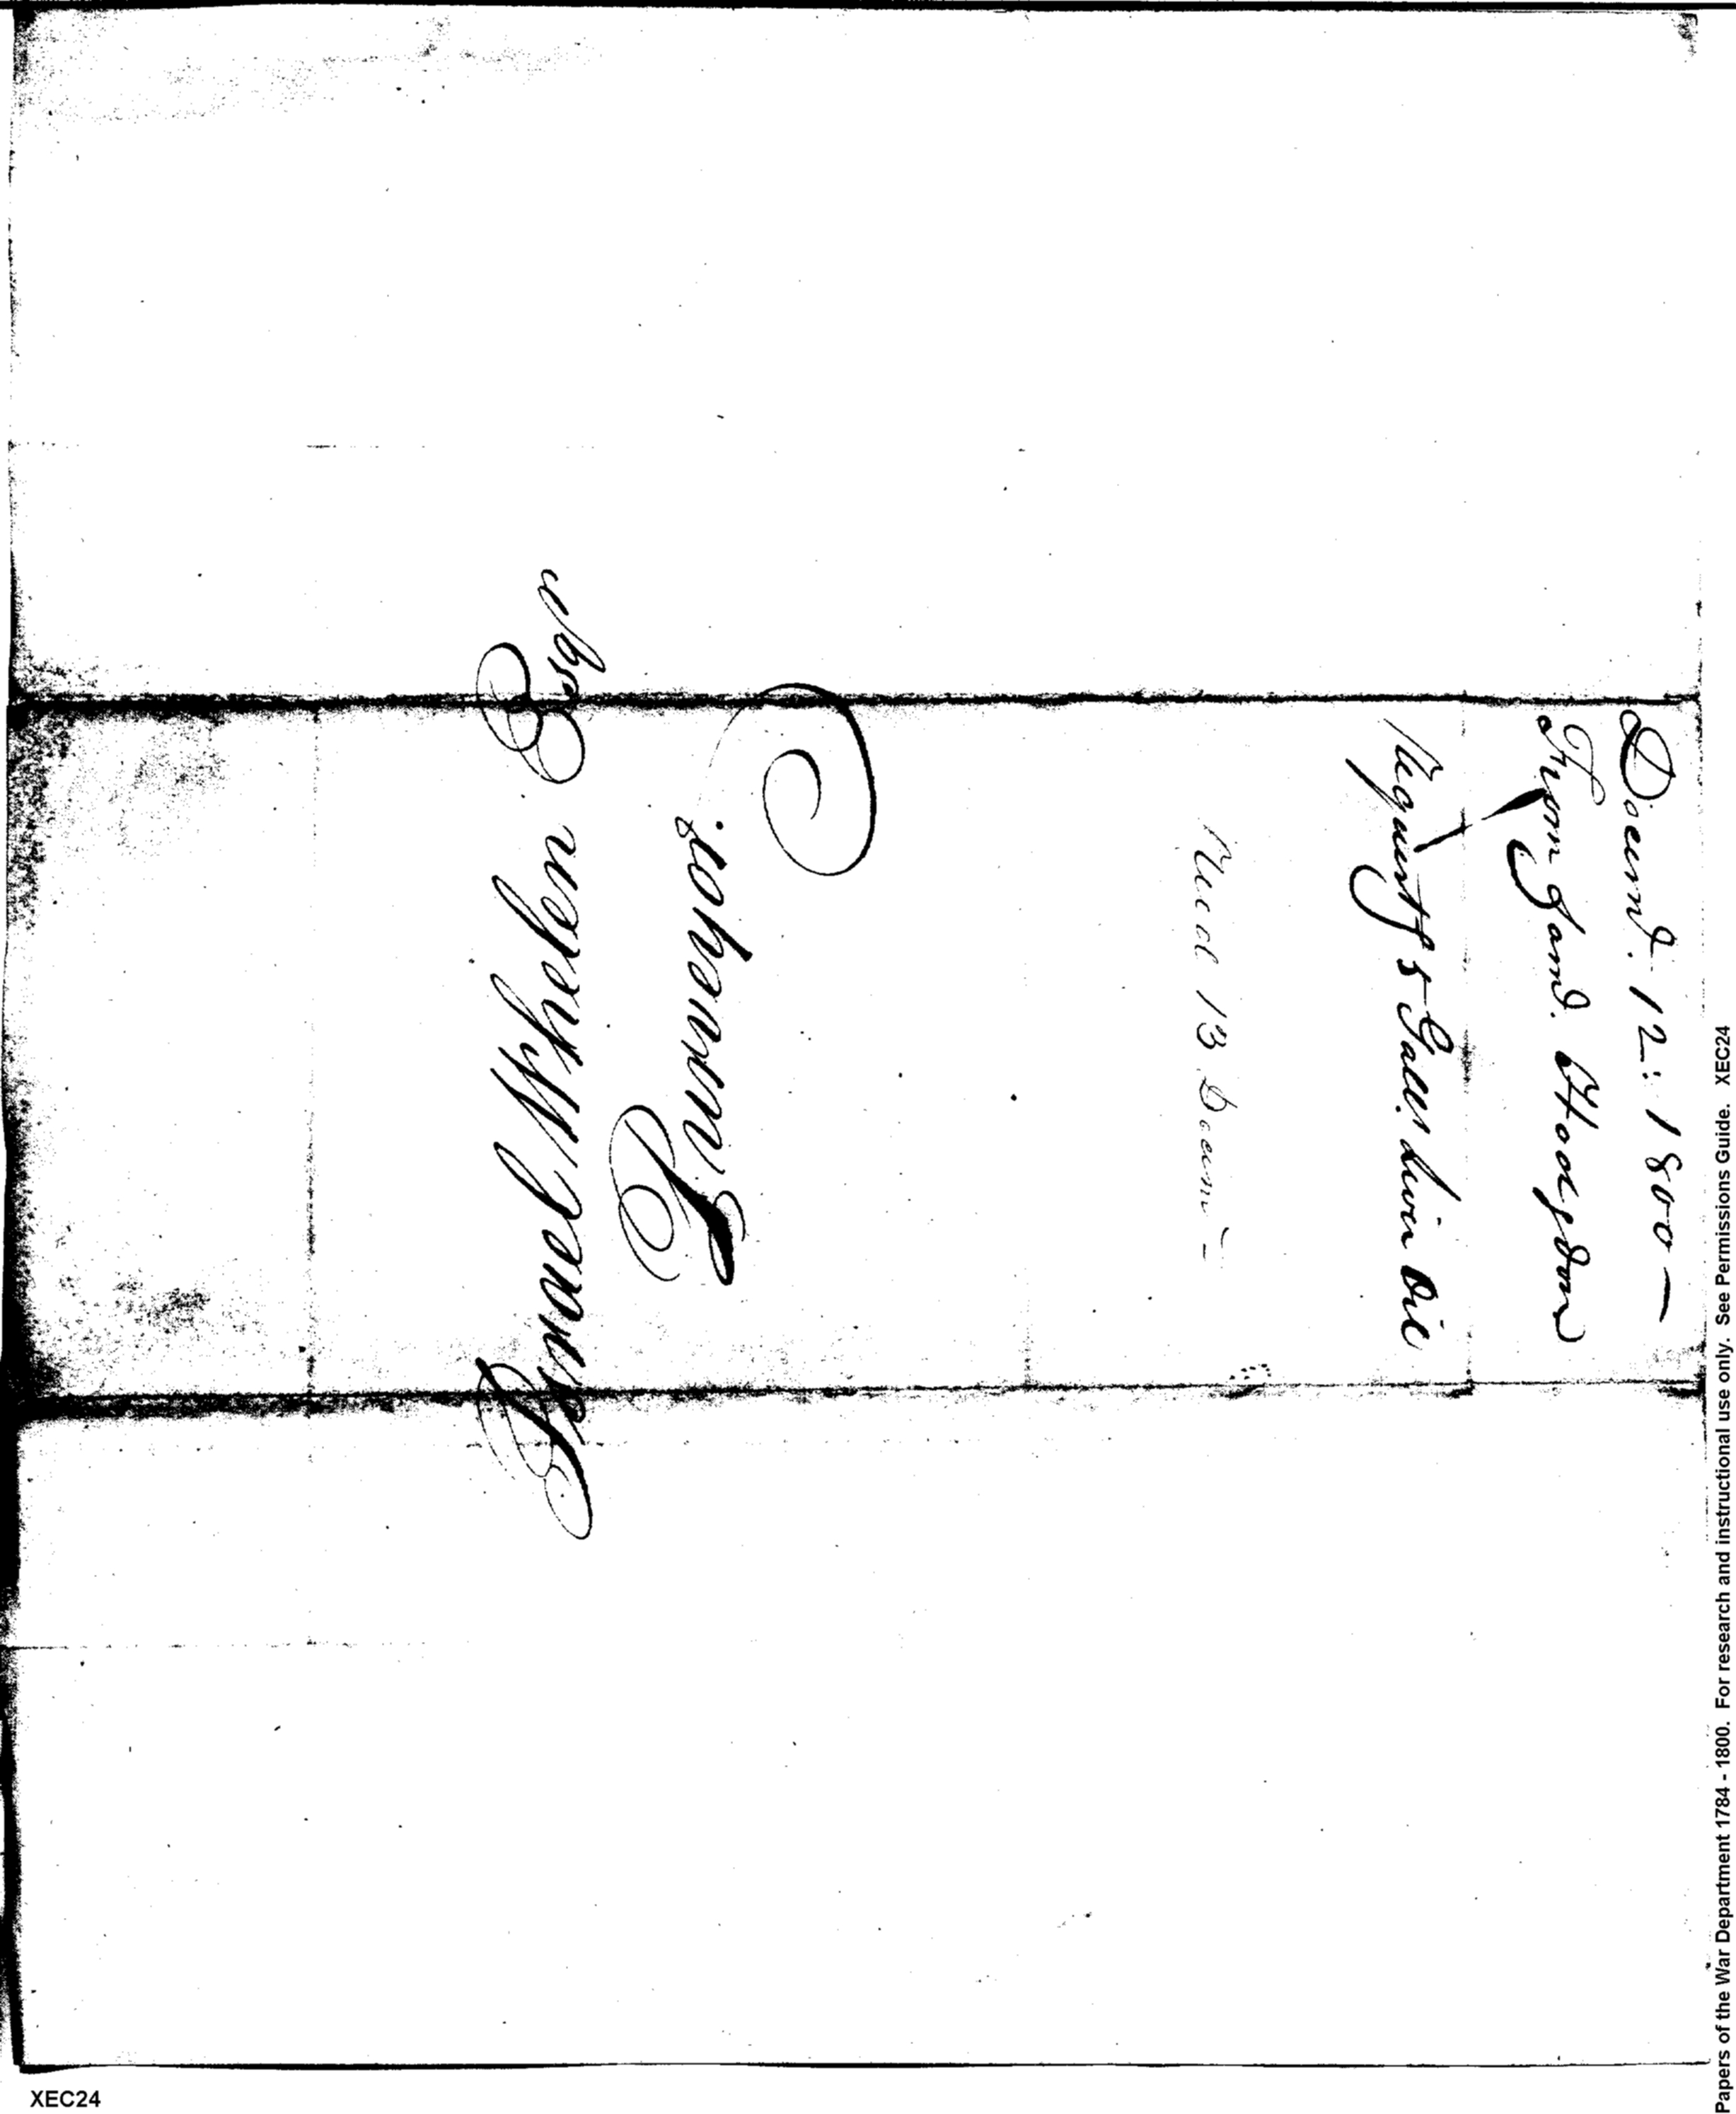 Israel Whelen Esqr
Purveyor.
Decemr. 12: 1800 —
From Saml. Hodgdon
Request 5 Galls. Linn Oil
Recd 13 Decemr —
Papers of the War Department 1784 - 1800. For research and instructional use only. See Permissions Guide. XEC24
XEC24